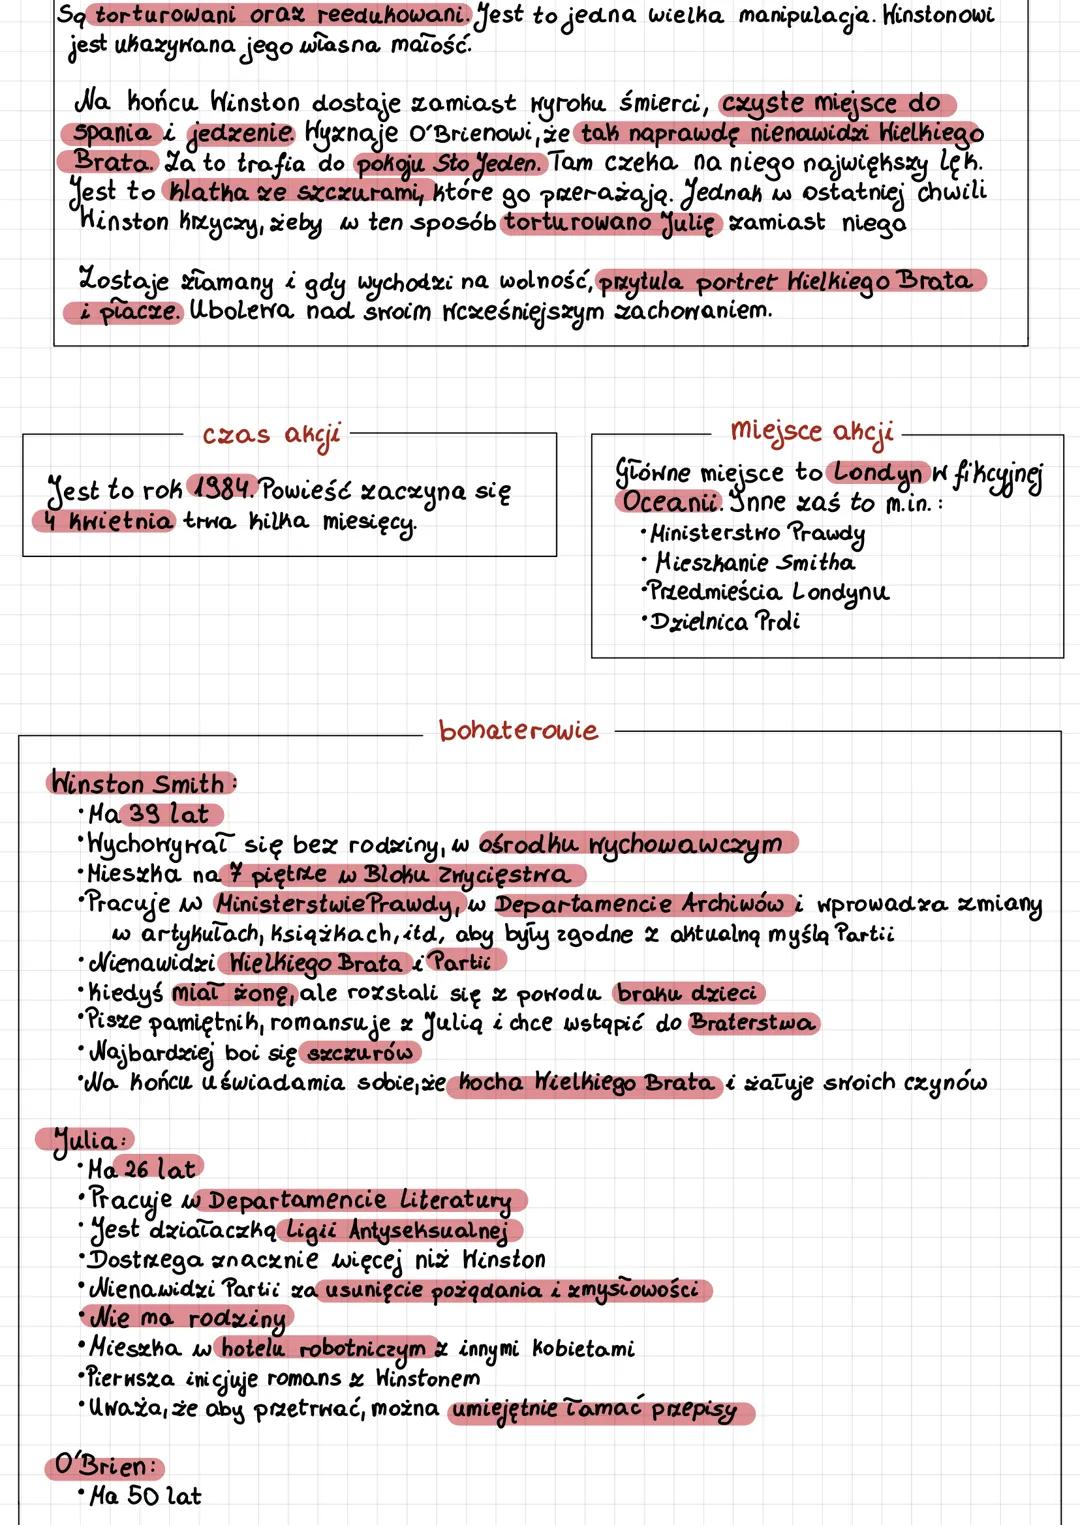 Są torturowani oraz reedukowani. Jest to jedna wielka manipulacja. Winstonowi
jest ukazywana jego własna małość.
Na końcu Winston dostaje zamiast wyroku śmierci, czyste miejsce do
spania i jedzenie. Wyznaje O'Brienowi, że tak naprawdę nienawidzi Wielkiego
Brata. Za to trafia do pokoju Sto Jeden. Tam czeka na niego największy lęk.
Jest to klatka ze szczurami, które go przerażają. Jednak w ostatniej chwili
Winston krzyczy, żeby w ten sposób torturowano Julię zamiast niego
Zostaje złamany i gdy wychodzi na wolność, przytula portret Wielkiego Brata
i płacze. Ubolewa nad swoim wcześniejszym zachowaniem.
czas akcji
Jest to rok 1984. Powieść zaczyna się
4 kwietnia trwa kilka miesięcy.
miejsce akcji
Główne miejsce to Londyn w fikcyjnej
Oceanii. Inne zaś to m.in.:
•Ministerstwo Prawdy
•Mieszkanie Smitha
•Przedmieścia Londynu
•Dzielnica Proli
bohaterowie
Winston Smith:
•Ma 39 lat
•Wychowywał się bez rodziny, w ośrodku wychowawczym
•Mieszka na 7 piętrze w Bloku Zwycięstwa
•Pracuje w Ministerstwie Prawdy, w Departamencie Archiwów i wprowadza zmiany
w artykułach, książkach, itd, aby były zgodne z aktualną myślą Partii
•Nienawidzi Wielkiego Brata i Partii
•Kiedyś miał żonę, ale rozstali się z powodu braku dzieci
•Pisze pamiętnik, romansuje z Julią i chce wstąpić do Braterstwa
•Najbardziej boi się szczurów
•Na końcu uświadamia sobie, że kocha Wielkiego Brata i żałuje swoich czynów
Julia:
•Ma 26 lat
•Pracuje w Departamencie Literatury
•Jest działaczką Ligii Antyseksualnej
•Dostrzega znacznie więcej niż Winston
•Nienawidzi Partii za usunięcie pożądania i zmysłowości
•Nie ma rodziny
•Mieszka w hotelu robotniczym z innymi kobietami
•Pierwsza inicjuje romans z Winstonem
•Uważa, że aby przetrwać, można umiejętnie łamać przepisy
O'Brien:
•Ma 50 lat